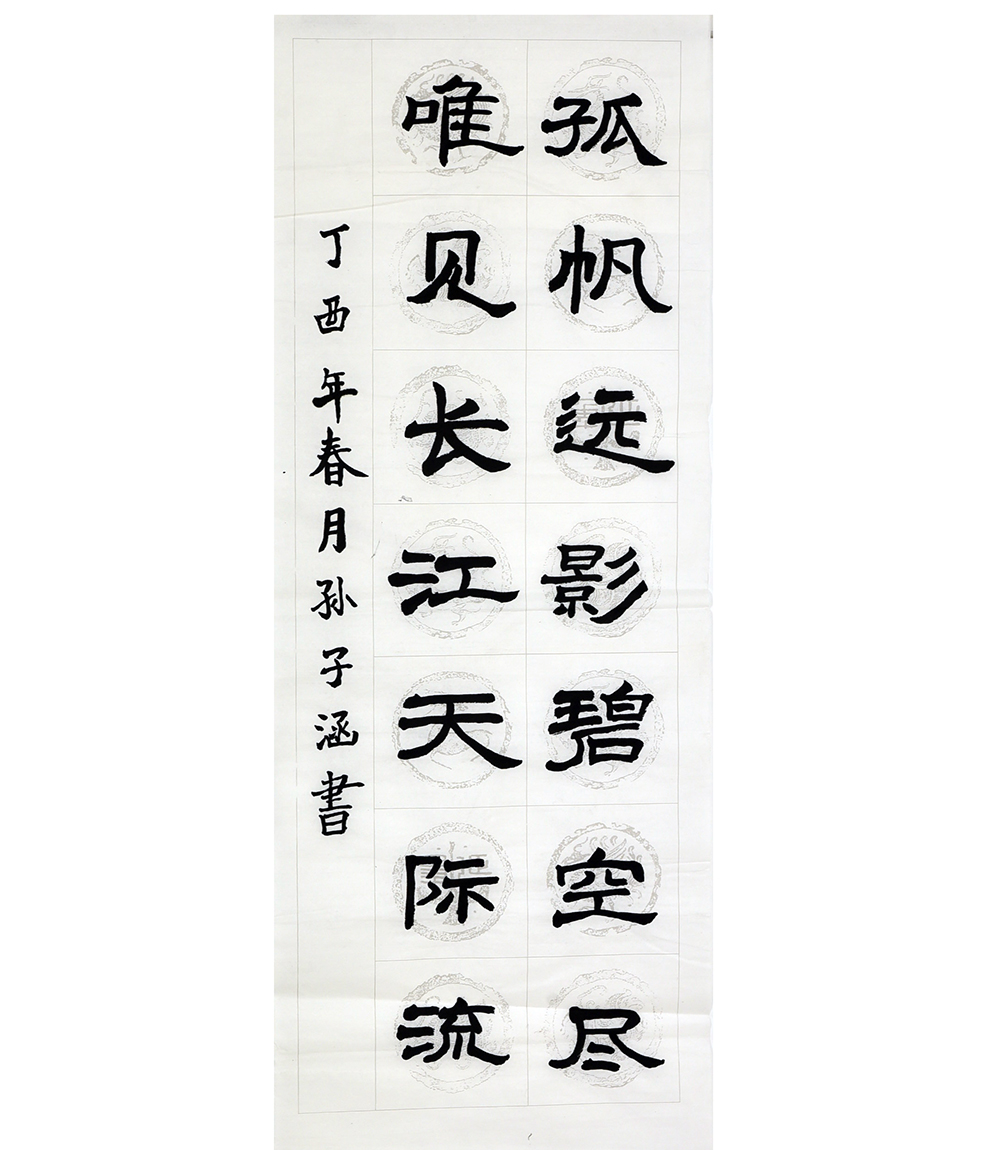 孤帆远影碧空尽
唯见长江天际流
丁酉年春月孙子涵書